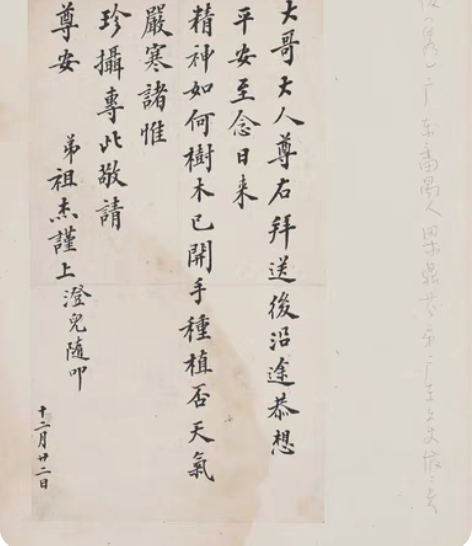 大哥大人尊右拜送後沿途恭想
平安至念日来
精神如何樹木已開手種植否天氣
嚴寒諸惟
珍攝專此敬請
尊安
弟祖杰謹上澄兒隨叩
十二月廿二日
广东番禺人